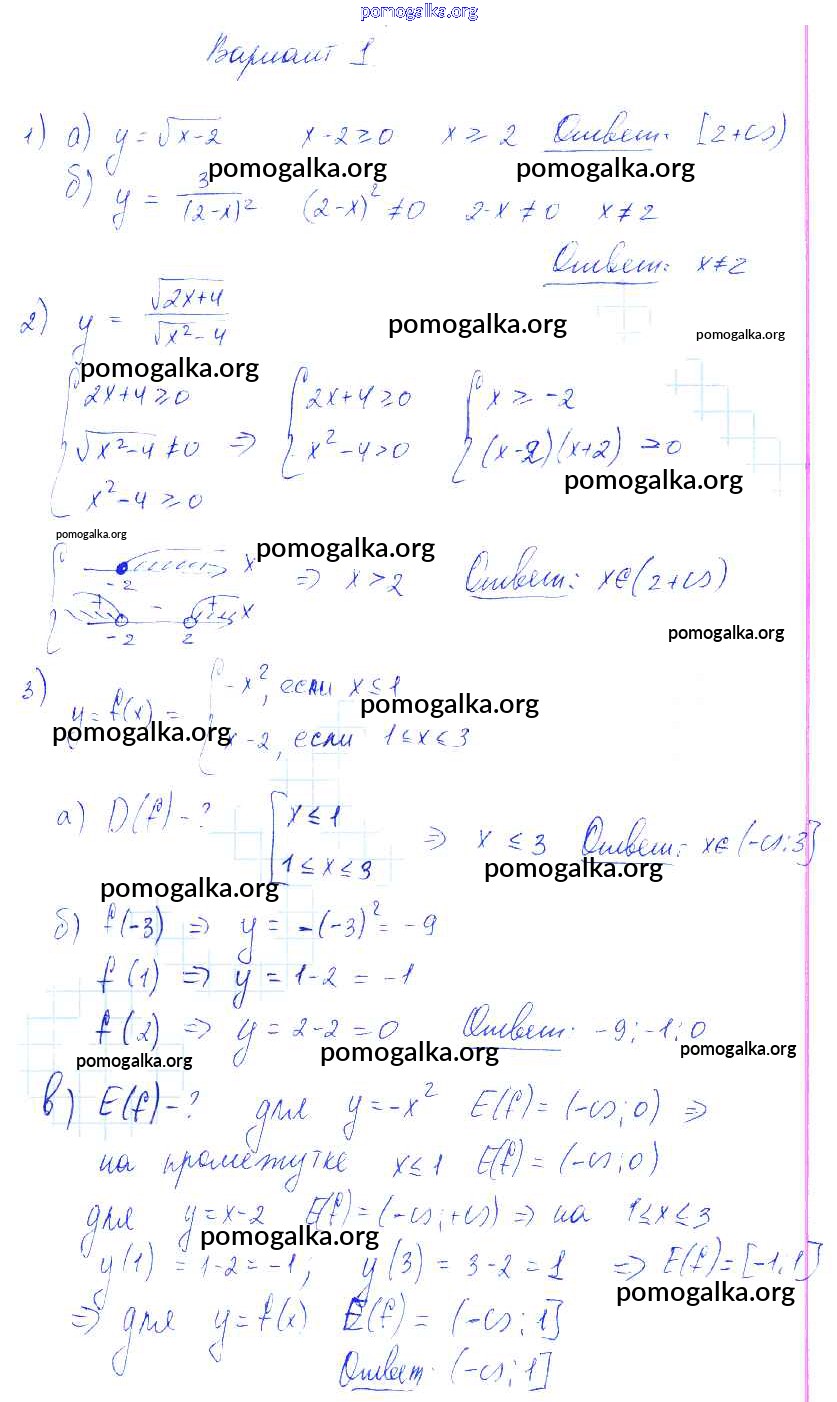 pomogalka.org
Вариант 1
1) а) y = √x-2   x-2 ≥ 0   x ≥ 2   Ответ: [2+∞)
pomogalka.org pomogalka.org
б) y = 3/(2-x)²   (2-x)² ≠ 0   2-x ≠ 0   x ≠ 2
Ответ: x ≠ 2
2) y = √2x+4 / √x²-4
pomogalka.org pomogalka.org
pomogalka.org
{ 2x+4 ≥ 0   { 2x+4 ≥ 0   { x ≥ -2
√x²-4 ≠ 0 ⇒ x²-4 > 0   (x-2)(x+2) > 0
pomogalka.org
x²-4 ≥ 0
pomogalka.org pomogalka.org
-2 x ⇒ x > 2   Ответ: x∈(2+∞)
+ - + x
-2 2
pomogalka.org
3) y = f(x) = { -x², если x ≤ 1
pomogalka.org
pomogalka.org
x-2, если 1 ≤ x ≤ 3
а) D(f) - ? [ x ≤ 1
1 ≤ x ≤ 3 ⇒ x ≤ 3   Ответ: x∈(-∞;3]
pomogalka.org pomogalka.org
б) f(-3) ⇒ y = -(-3)² = -9
f(1) ⇒ y = 1-2 = -1
f(2) ⇒ y = 2-2 = 0   Ответ: -9; -1; 0
pomogalka.org pomogalka.org pomogalka.org
в) E(f) - ? для y = -x²   E(f) = (-∞; 0) ⇒
на промежутке x ≤ 1   E(f) = (-∞; 0)
для y = x-2   E(f) = (-∞; +∞) ⇒ на 1 ≤ x ≤ 3
pomogalka.org
y(1) = 1-2 = -1; y(3) = 3-2 = 1 ⇒ E(f) = [-1; 1]
pomogalka.org
⇒ для y = f(x) E(f) = (-∞; 1]
Ответ: (-∞; 1]